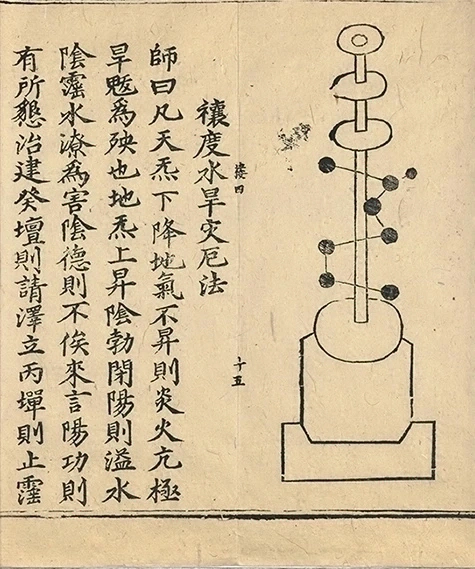 四
十五
禳度水旱灾厄法
師曰凡天炁下降地氣不昇則炎火亢極
旱魃爲殃也地炁上昇陰勃閉陽則溢水
陰霪水潦爲害陰德則不俟來言陽功則
有所懇治建癸壇則請澤立丙墠則止霪